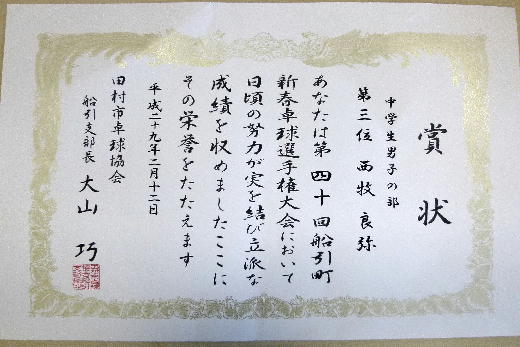 賞状
中学生男子の部
第三位 西牧良弥
あなたは第四十回船引町
新春卓球選手権大会において
日頃の努力が実を結び立派な
成績を収めましたここに
その栄誉をたたえます
平成二十九年二月十二日
田村市卓球協会
船引支部長 大山巧